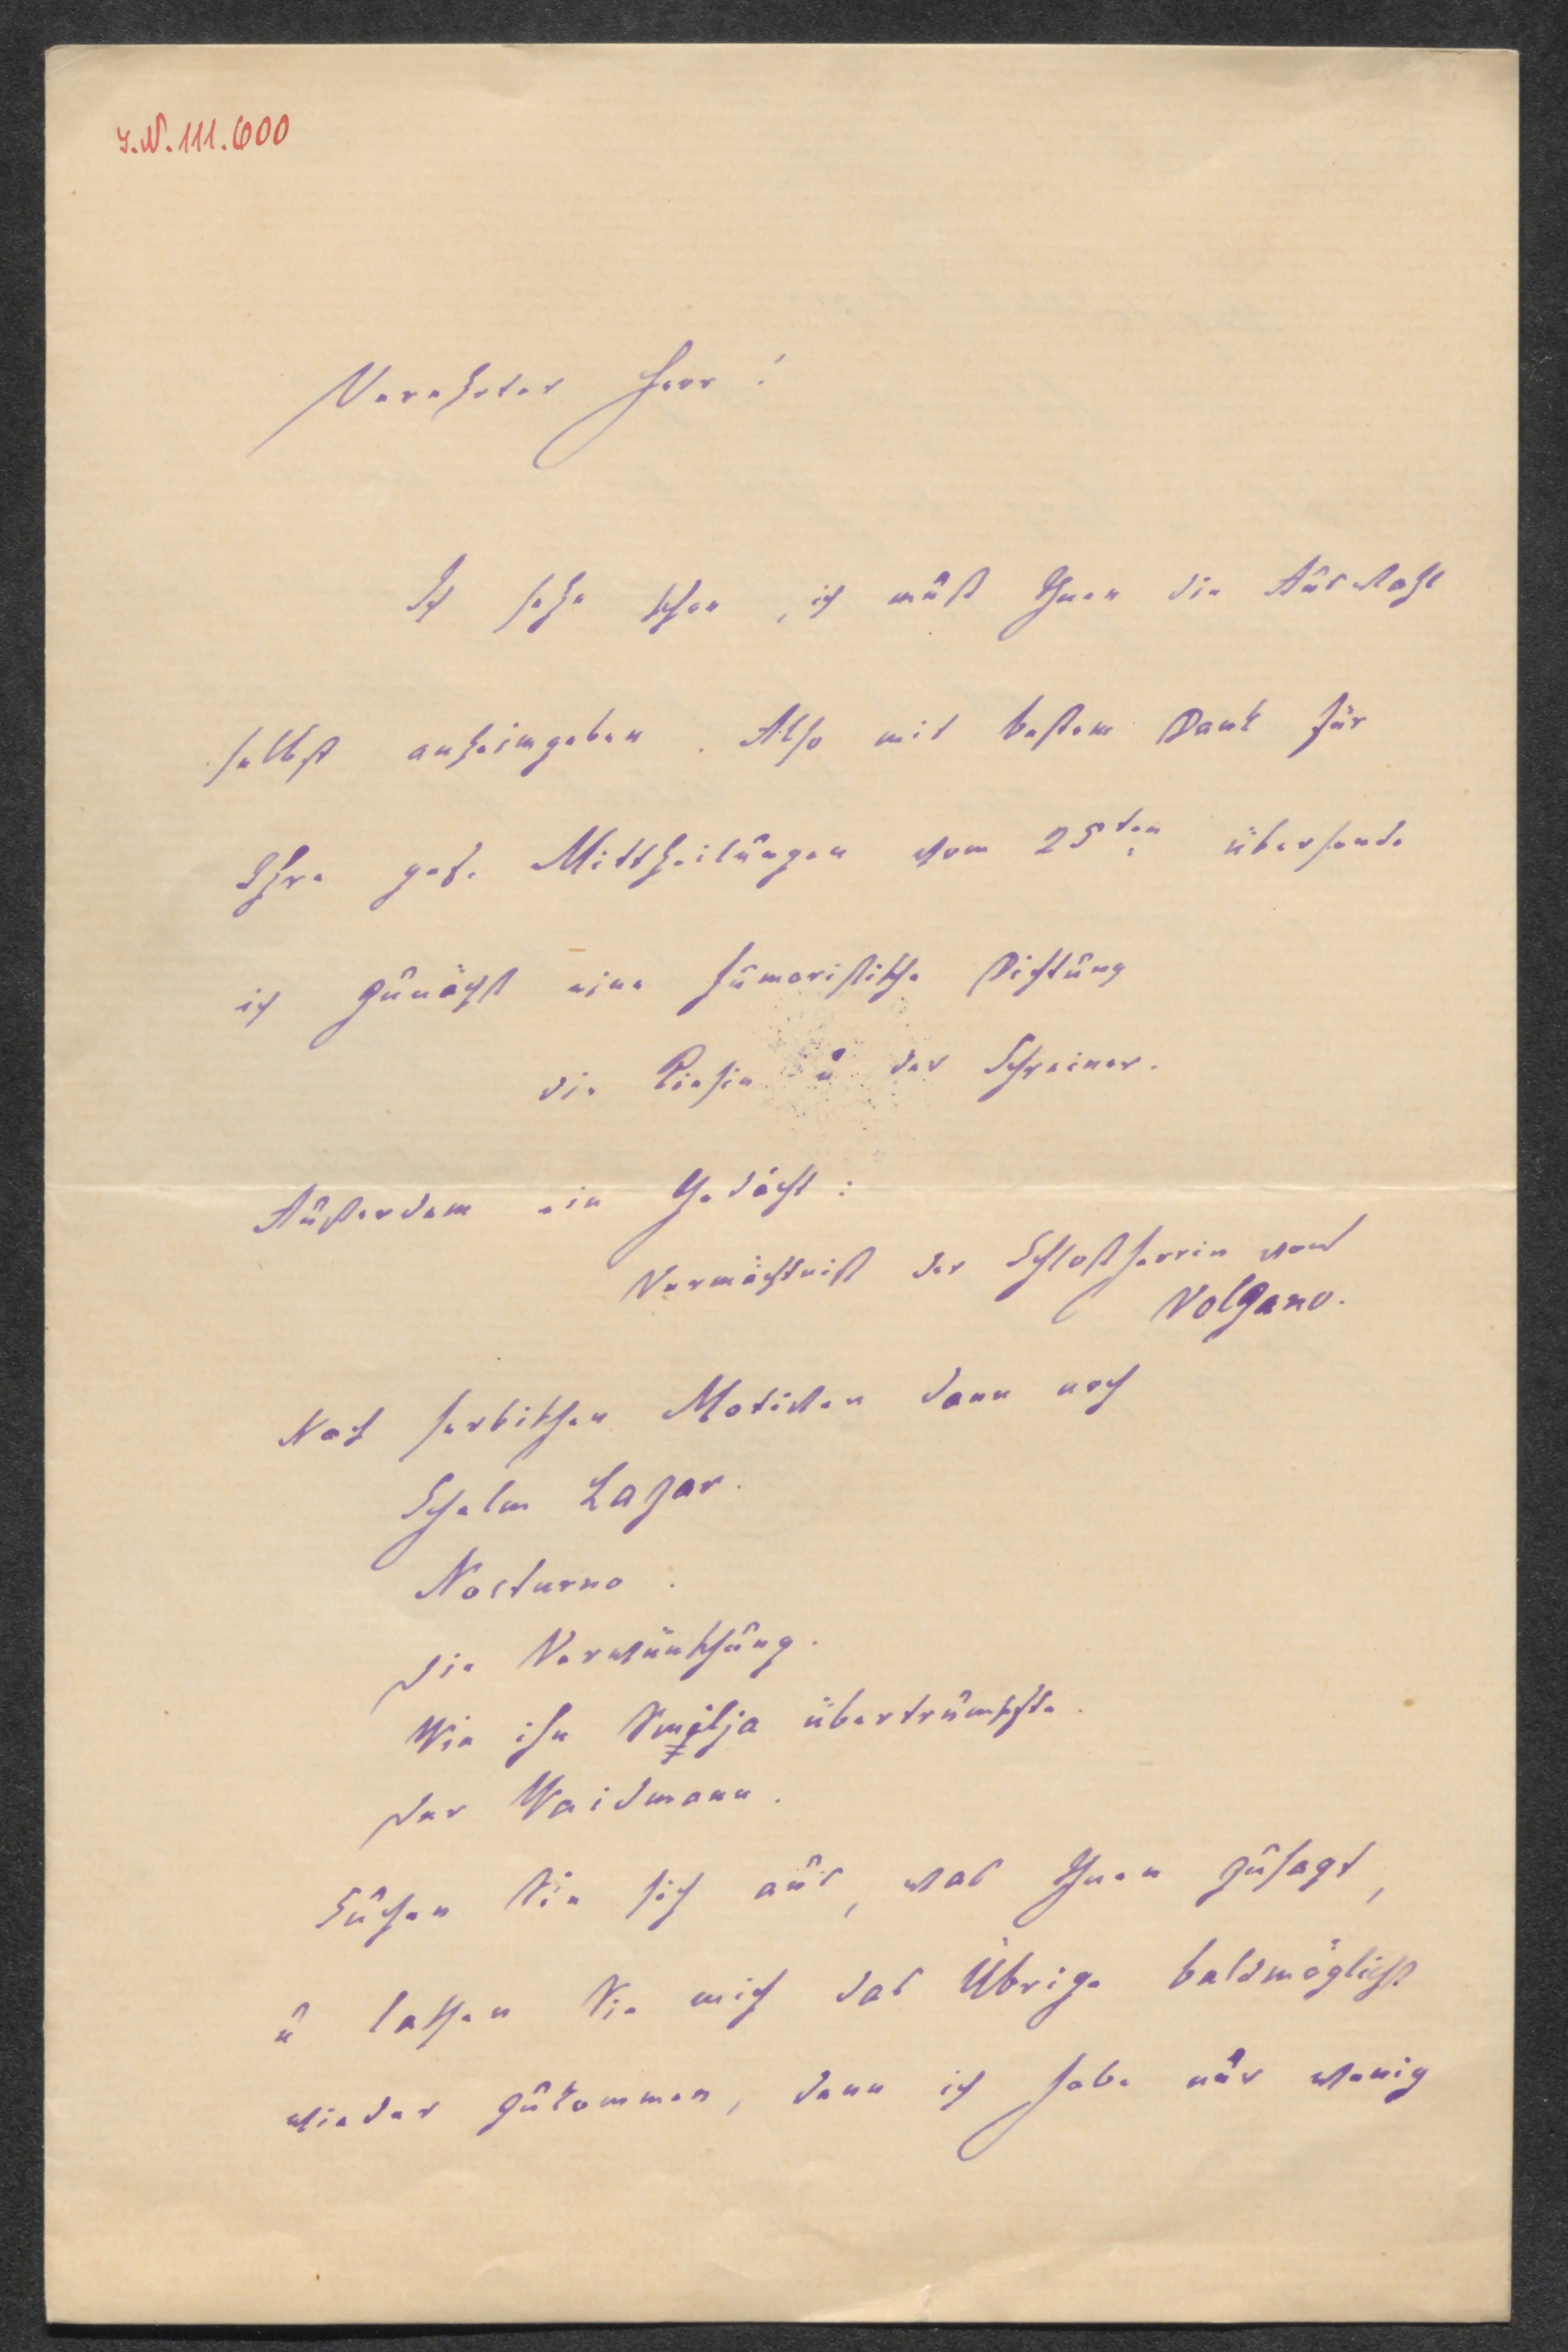 I.N. 111.600
Verehrter Herr!
Ich sehe schon, ich muß Ihnen die Auswahl
selbst anheimgeben. Also mit bestem Dank für
Ihre gef. Mittheilungen vom 25ten übersende
ich zunächst eine humoristische Dichtung
die Riesin u der Schreiner.
Außerdem ein Gedicht:
Vermächtniß der Schloßherrin von
Volgano.
Nach serbischen Motiven dann noch
Schelm Lazar.
Nocturno.
Die Verwünschung.
Wie ihn Smilja übertrumpfte.
Der Waidmann.
Suchen Sie sich aus, was Ihnen zusagt,
u lassen Sie mich das Übrige baldmöglichst
wieder zukommen, denn ich habe nur wenig